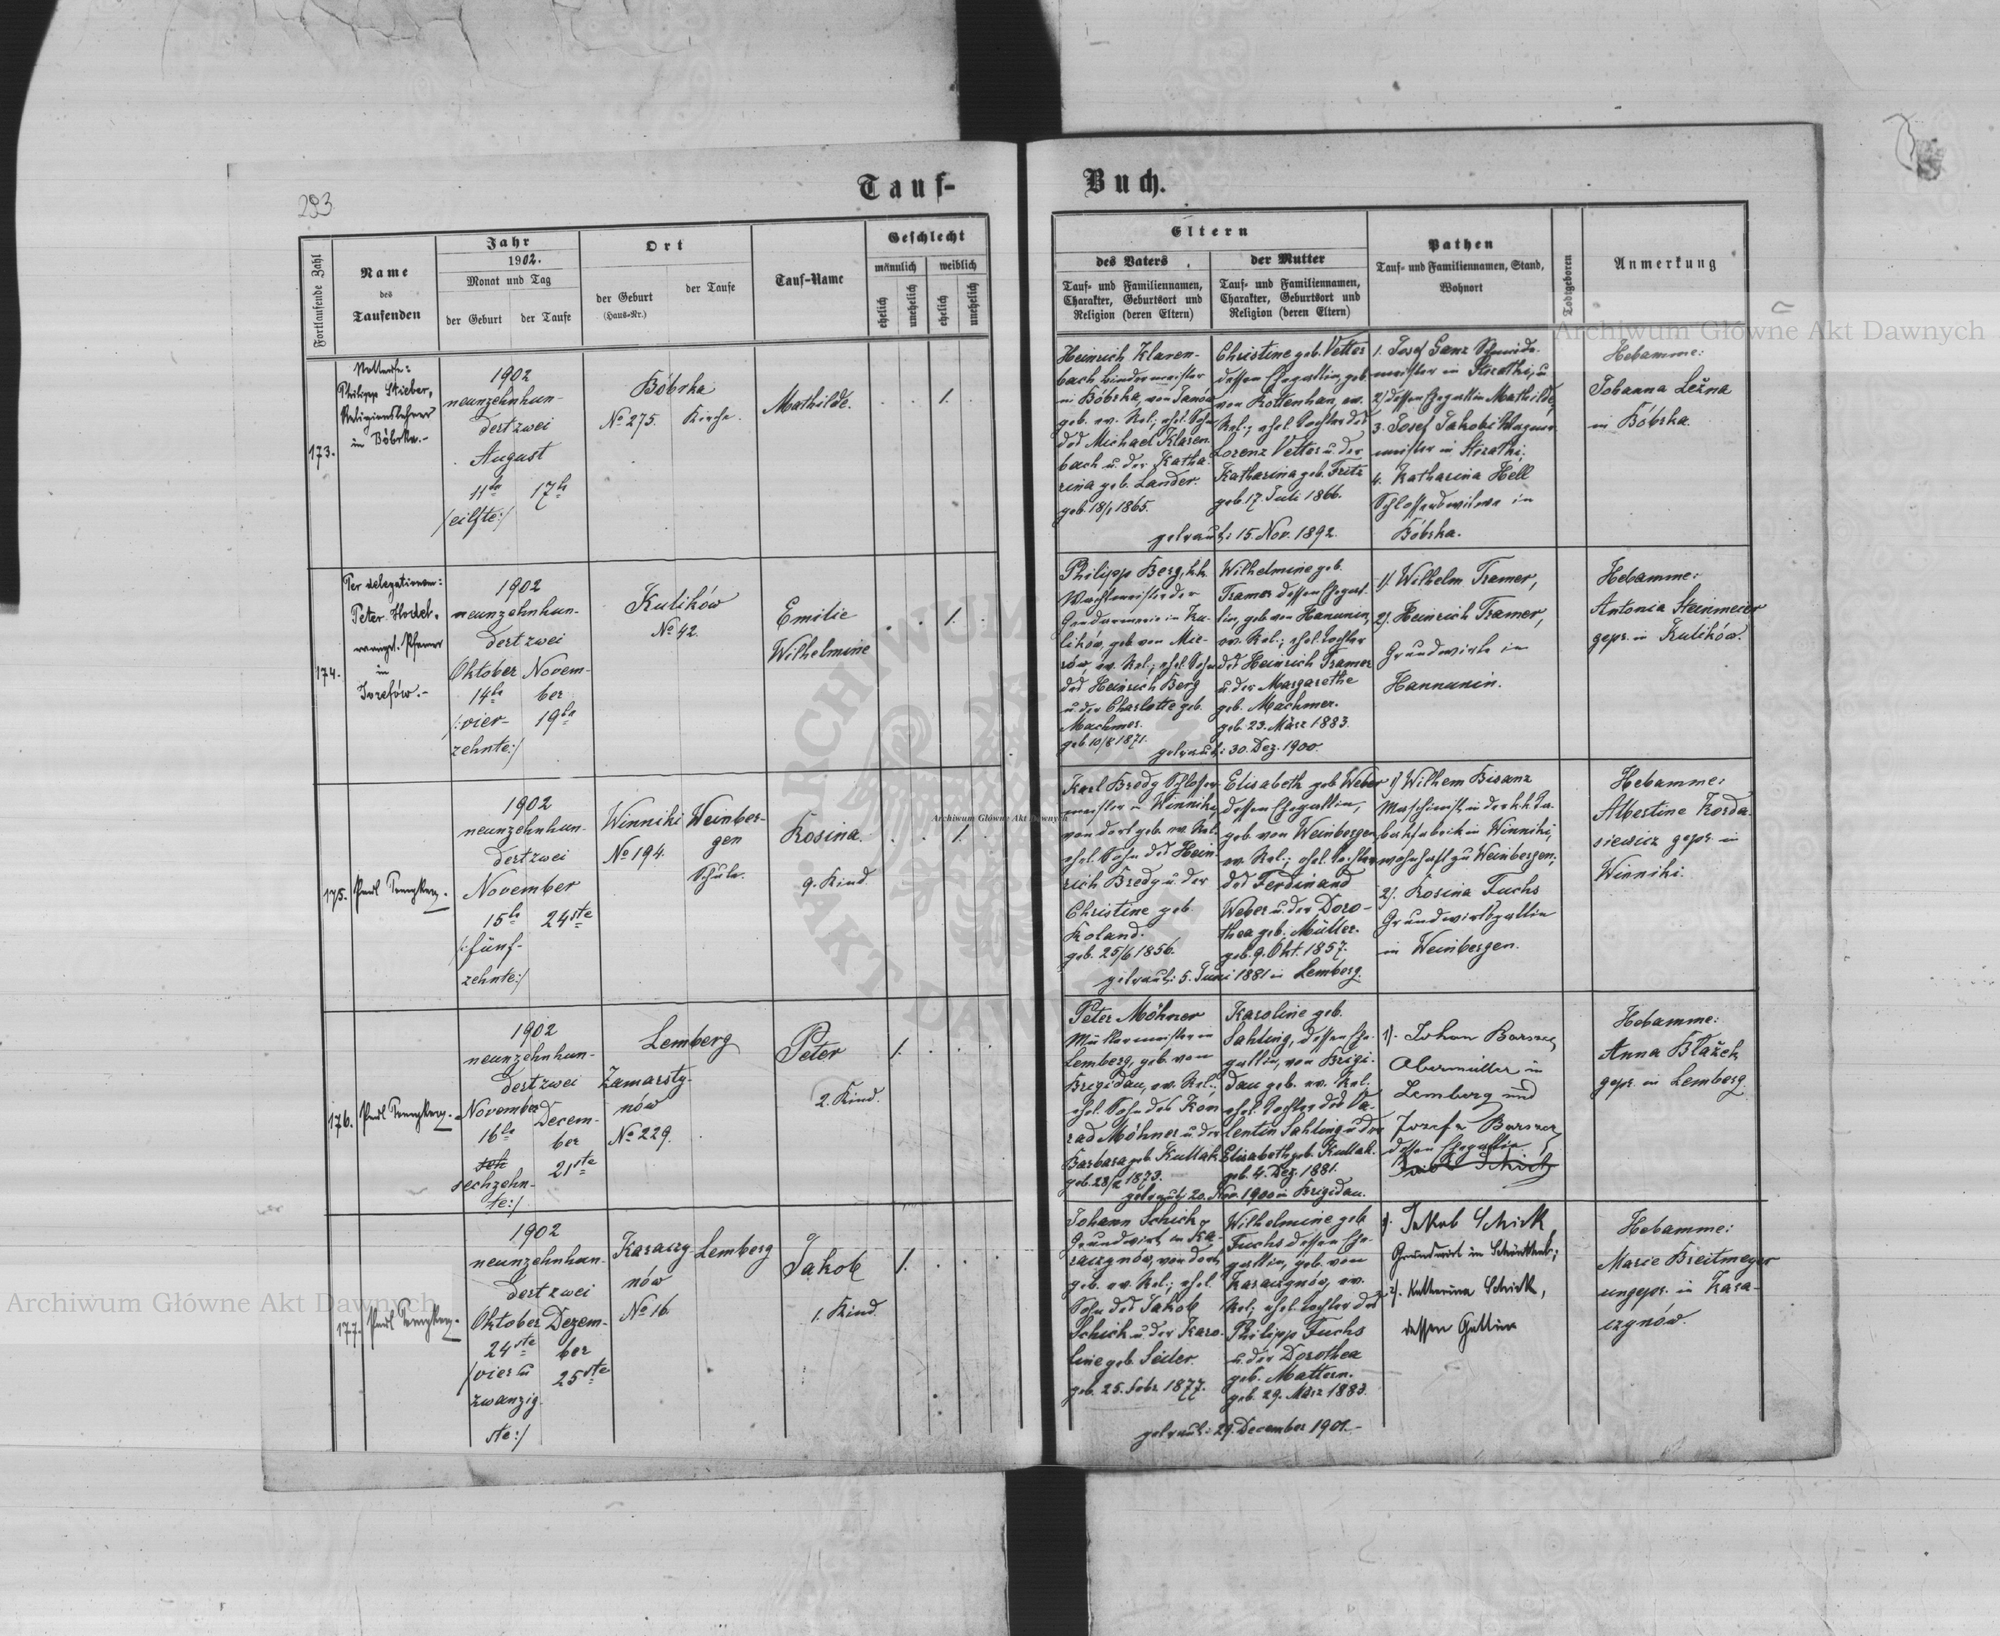 293.
Tauf-
Buch.
Fortlaufende Zahl
Name
des
Taufenden
Jahr
1902.
Monat und Tag
der Geburt
der Taufe
Ort
der Geburt
(Haus-Nr.)
der Taufe
Tauf-Name
Geschlecht
männlich
weiblich
ehelich
unehelich
ehelich
unehelich
Eltern
des Vaters
Tauf- und Familiennamen,
Charakter, Geburtsort und
Religion (deren Eltern)
der Mutter
Tauf- und Familiennamen,
Charakter, Geburtsort und
Religion (deren Eltern)
Pathen
Tauf- und Familiennamen, Stand,
Wohnort
Todtgeboren
Anmerkung
173.
Philipp Stieber,
Religionslehrer
in Bóbrka.-
1902
neunzehnhun-
dert zwei
August
11te
17te
/eilfte:/
Bóbrka
No 275.
Kirche.
Mathilde.
1.
Heinrich Klaren-
bach Bindermeister
in Bóbrka, von Janow
geb. ev. Rel.; ehel. Sohn
des Michael Klaren-
bach u. der Katha-
rina geb. Lander.
geb. 18/1 1865.
Christine geb. Vetter
dessen Ehegattin, geb.
von Rottenhan, ev.
Rel.; ehel. Tochter des
Lorenz Vetter u. der
Katharina geb. Fritz
geb. 17. Juli 1866.
getraut: 15. Nov. 1892.
1. Josef Ganz Schmiede-
meister in Strzałki, u
2) dessen Ehegattin Mathilde,
3. Josef Jakobi Wagner-
meister in Strzałki;
4. Katharina Hell
Schlosserswitwe in
Bóbrka.
Hebamme:
Johanna Ležna
in Bóbrka.
174.
Per delegationem:
Peter
evangel. Pfarrer
in
Josefów.-
1902
neunzehnhun-
dert zwei
Oktober
Novem-
14te
ber
/:vier-
19te
zehnte:/
Kulików
No 42.
Emilie
Wilhelmine
1.
Philipp Berg, k.k.
Wachtmeister der
Gendarmerie in Ku-
lików, geb. von Mie-
rów ev. Rel.; ehel. Sohn
des Heinrich Berg
u. der Charlotte geb.
Machmer.
geb. 10/8 1871.
Wilhelmine geb.
Tramer dessen Ehegat-
tin, geb. von Hanunin,
ev. Rel.; ehel. Tochter
des Heinrich Tramer
u. der Margarethe
geb. Machmer.
geb. 23. März 1883.
getraut: 30. Dez. 1900.
1). Wilhelm Tramer,
2). Heinrich Tramer,
Grundwirte in
Hannunin.
Hebamme:
Antonia Steinmeier
gepr. in Kulików.
175.
1902
neunzehnhun-
dert zwei
November
15te
24ste
/:fünf-
zehnte:/
Winniki
Weinber-
No 194.
gen
Schule.
Rosina.
9. Kind.
1.
Karl Bredy Schlosser-
meister in Winniki,
von dort geb. ev. Rel.
ehel. Sohn des Hein-
rich Bredy u. der
Christine geb.
Koland.
geb. 25/6 1856.
Elisabeth geb. Weber
dessen Ehegattin,
geb. von Weinbergen,
ev. Rel.; ehel. Tochter
des Ferdinand
Weber u. der Doro-
thea geb. Müller.
geb. 9. Okt. 1857.
getraut: 5. Juni 1881 in Lemberg.
1) Wilhem Bisanz
Maschinist in der k.k. Ta-
bakfabrik in Winniki,
wohnhaft zu Weinbergen;
2). Rosina Fuchs
Grundwirtsgattin
in Weinbergen.
Hebamme:
Albertine Korda-
siewicz gepr. in
Winniki.
176.
1902
neunzehnhun-
dert zwei
November
Decem-
16te
ber
21ste
sechzehn-
te:/
Lemberg
Zamarsty-
nów
No 229.
Peter
2. Kind.
1.
Peter Möhner
Müllermeister in
Lemberg, geb. von
Brigidau, ev. Rel.,
ehel. Sohn des Kon-
rad Möhner u. der
Barbara geb. Kullak
geb. 28/2 1873.
Karoline geb.
Sahling, dessen Ehe-
gattin, von Brigi-
dau geb. ev. Rel.
ehel. Tochter des Va-
lentin Sahling u. der
Elisabeth geb. Kullak.
geb. 4. Dez. 1881.
getraut: 20. Nov. 1900 in Brigidau.
1). Johan Barszcz
Obermüller in
Lemberg und
Jozefa Barszcz
dessen Ehegattin
Hebamme:
Anna Błažek
gepr. in Lemberg
177.
1902
neunzehnhun-
dert zwei
Oktober
Dezem-
24ste
ber
/vier u
25ste
zwanzig-
ste:/
Karaczy-
Lemberg
nów
No 16
Jakob
1. Kind.
1.
Johann Schick,
Grundwirt in Ka-
raczynów, von dort
geb. ev. Rel.; ehel.
Sohn des Jakob
Schick u. der Karo-
line geb. Seiler.
geb. 25. Febr. 1877.
Wilhelmine geb.
Fuchs dessen Ehe-
gattin, geb. von
Karaczynów, ev.
Rel; ehel. Tochter des
Philipp Fuchs
u. der Dorothea
geb. Mattern.
geb. 29. März 1883.
getraut: 29. December 1901.-
1). Jakob Schick
Grundwirt in Schönthal;
2). Katharina Schick,
dessen Gattin
Hebamme:
Marie Breitmeyer
ungepr. in Kara-
czynów
Archiwum Główne Akt Dawnych
Archiwum Główne Akt Dawnych
Archiwum Główne Akt Dawnych